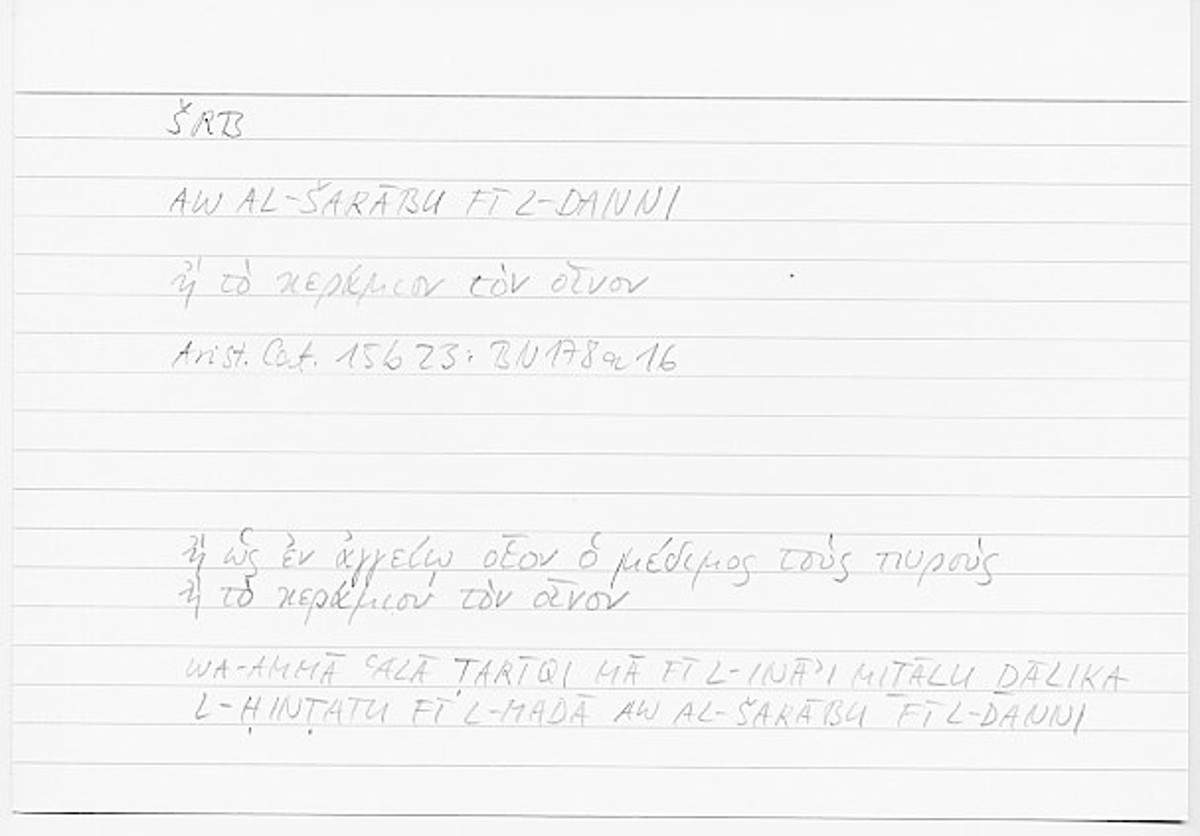 ŠRB
AW AL-ŠARĀBU FĪ L-DANNI
ἢ τὸ κεράμιον τὸν οἶνον
Arist. Cat. 15b23; BN178a16
ἢ ὡς ἐν ἀγγείῳ οἷον ὁ μέδιμος τοὺς πυροὺς
ἢ τὸ κεράμιον τὸν οἶνον
WA-AMMĀ ʿALĀ ṬARĪQI MĀ FĪ L-INĀʾI MIṮĀLU ḎĀLIKA
L-ḤINṬATU FĪ L-MADĀ AW AL-ŠARĀBU FĪ L-DANNI